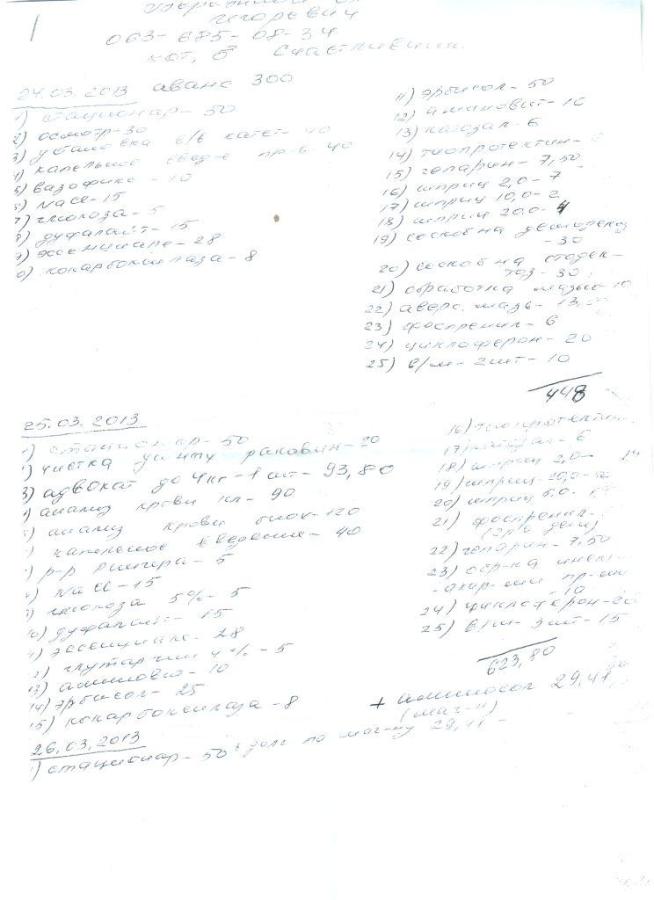 Игоревич
063-685-08-34
кот, 8 Счастливчик
24.03.2013 аванс 300
1) стационар-50
2) осмотр-30
3) установка в/в катет- 40
4) капельное введ-е пр-в- 40
5) вазофикс - 10
6) NaCl-15
7) глюкоза- 5
8) дуфалайт- 15
9) эссенциале- 28
10) кокарбоксилаза- 8
11) эрбисол- 50
12) аминовит- 10
13) катозал- 6
14) тиопротектин-
15) гепарин- 7,50
16) шприц 2,0- 7
17) шприц 10,0- 2
18) шприц 20,0- 4
19) соскоб на демодекоз
- 30
20) соскоб на отодек-
тоз- 30
21) обработка мазью- 10
22) аверс. мазь- 13,
23) фоспренил- 6
24) циклоферон- 20
25) в/м- 2шт- 10
448
25.03.2013
1) стационар- 50
2) чистка ушных раковин- 20
3) адвокат до 4кг- 1 шт- 93,80
4) анализ крови кл- 90
5) анализ крови биох-120
6) капельное введение- 40
7) р-р Рингера- 5
8) NaCl-15
9) глюкоза 5%- 5
10) дуфалайт- 15
11) эссенциале- 28
12) глутаргин 4%- 5
13) аминовит- 10
14) эрбисол- 25
15) кокарбоксилаза -8
16) тиопротектин-
17) катозал- 6
18) шприц 2,0-
19) шприц 20,0-
20) шприц 5,0-
21) фоспренил-
(2р/в день)
22) гепарин- 7,50
23) обр-ка инсек-
-акар-ми пр-ми
- 10
24) циклоферон-20
25) в/м- 3шт- 15
623,80
+ аминосол 29,41
(маг-н)
26.03.2013
1) стационар- 50 долг по маг-ну 29,41-